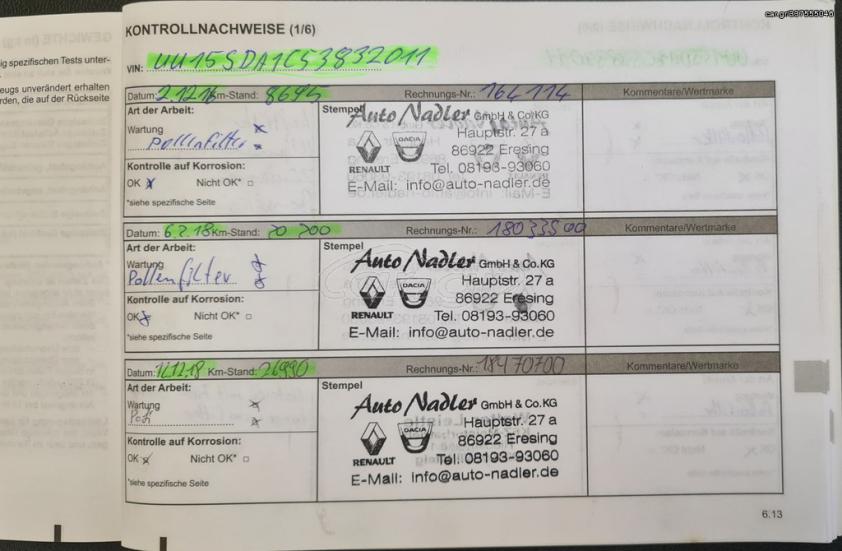 car.gr/337555046
ig spezifischen Tests unter-
zeugs unverändert erhalten
rden, die auf der Rückseite
KONTROLLNACHWEISE (1/6)
VIN: UU15SDA1C53832011
Datum: 2.12.16 Km-Stand: 8695 Rechnungs-Nr.: 164114 Kommentare/Wertmarke
Art der Arbeit:
Wartung x
Pollenfilter x
Kontrolle auf Korrosion:
OK x Nicht OK* □
*siehe spezifische Seite
Stempel
Auto Nadler GmbH & Co.KG
Hauptstr. 27 a
86922 Eresing
RENAULT DACIA Tel. 08193-93060
E-Mail: info@auto-nadler.de
Datum: 6.2.18 Km-Stand: 20 200 Rechnungs-Nr.: 18033500 Kommentare/Wertmarke
Art der Arbeit:
Wartung x
Pollenfilter x
Kontrolle auf Korrosion:
OK x Nicht OK* □
*siehe spezifische Seite
Stempel
Auto Nadler GmbH & Co.KG
Hauptstr. 27 a
86922 Eresing
RENAULT DACIA Tel. 08193-93060
E-Mail: info@auto-nadler.de
Datum: 11.12.18 Km-Stand: 26990 Rechnungs-Nr.: 18470700 Kommentare/Wertmarke
Art der Arbeit:
Wartung x
x
Kontrolle auf Korrosion:
OK x Nicht OK* □
*siehe spezifische Seite
Stempel
Auto Nadler GmbH & Co.KG
Hauptstr. 27 a
86922 Eresing
RENAULT DACIA Tel. 08193-93060
E-Mail: info@auto-nadler.de
6.13